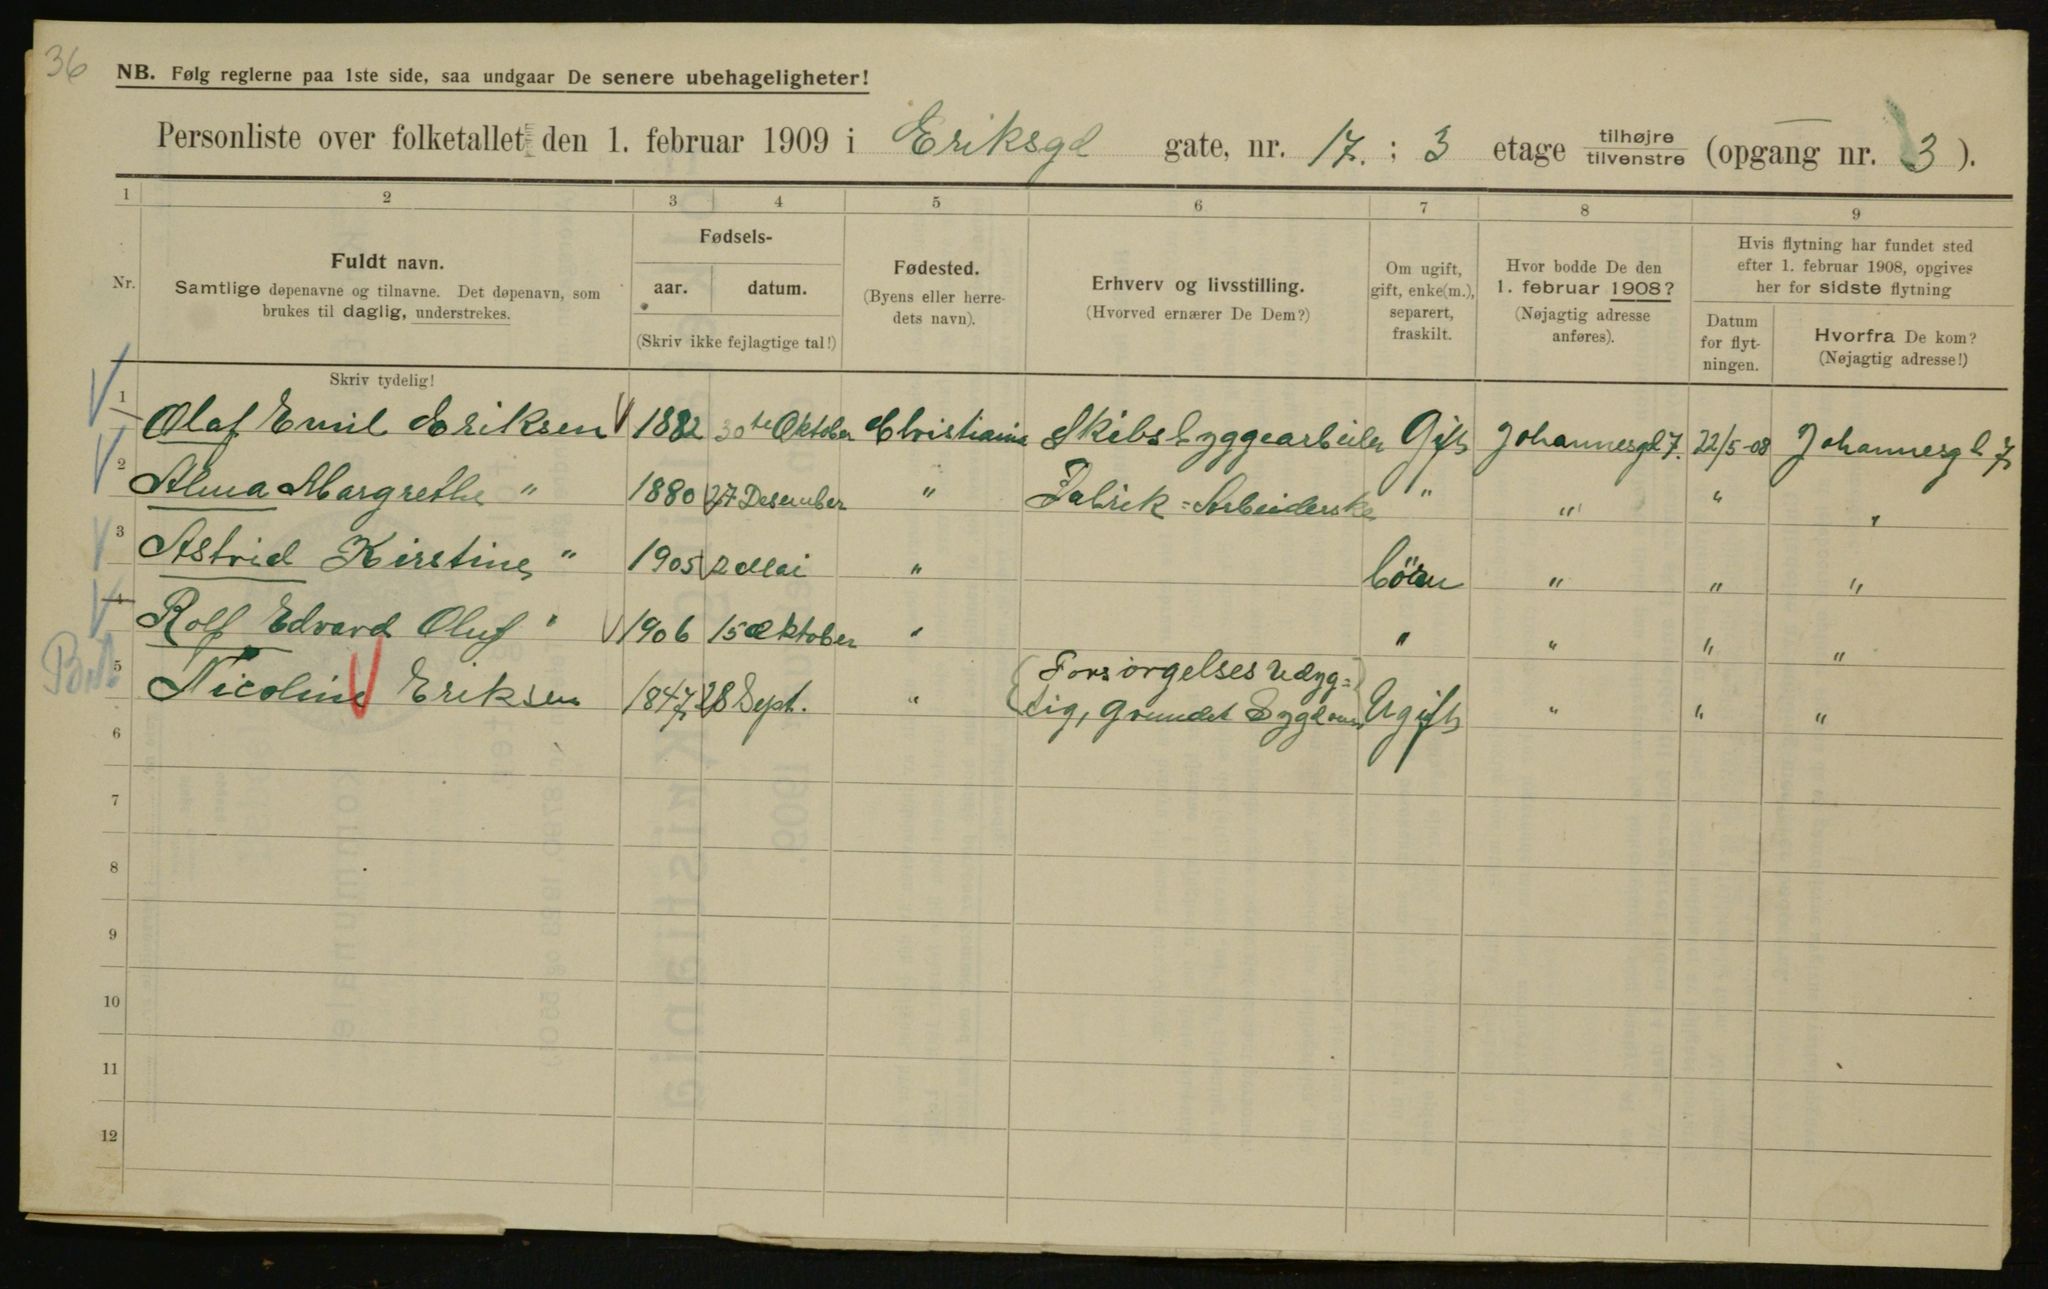 36
NB. Følg reglerne paa 1ste side, saa undgaar De senere ubehageligheter!
Personliste over folketallet den 1. februar 1909 i Eriksgd gate, nr. 17. ; 3 etage tilhøjre/tilvenstre (opgang nr. 3 ).
1 2 3 4 5 6 7 8 9
Nr.
Fuldt navn.
Samtlige døpenavne og tilnavne. Det døpenavn, som
brukes til daglig, understrekes.
Skriv tydelig!
Fødsels-
aar. datum.
(Skriv ikke fejlagtige tal!)
Fødested.
(Byens eller herre-
dets navn).
Erhverv og livsstilling.
(Hvorved ernærer De Dem?)
Om ugift,
gift, enke(m.),
separert,
fraskilt.
Hvor bodde De den
1. februar 1908?
(Nøjagtig adresse
anføres).
Hvis flytning har fundet sted
efter 1. februar 1908, opgives
her for sidste flytning
Datum
for flyt-
ningen.
Hvorfra De kom?
(Nøjagtig adresse!)
1 Olaf Emil Eriksen 1882 30te Oktober Christiania Skibsbyggearbeider Gift Johannesgd 7. 22/5-08 Johannesgd 7
2 Alma Margrethe " 1880 27 Desember " Fabrik=Arbeiderske " " " "
3 Astrid Kirstine " 1905 2 Mai " " " "
4 Rolf Edvard Oluf " 1906 15 Oktober " " " " "
5 Nicoline Eriksen 1847 28 Sept. " (Forsørgelses Udyg=
tig, grundet Sygdom) Ugift " " "
6
7
8
9
10
11
12